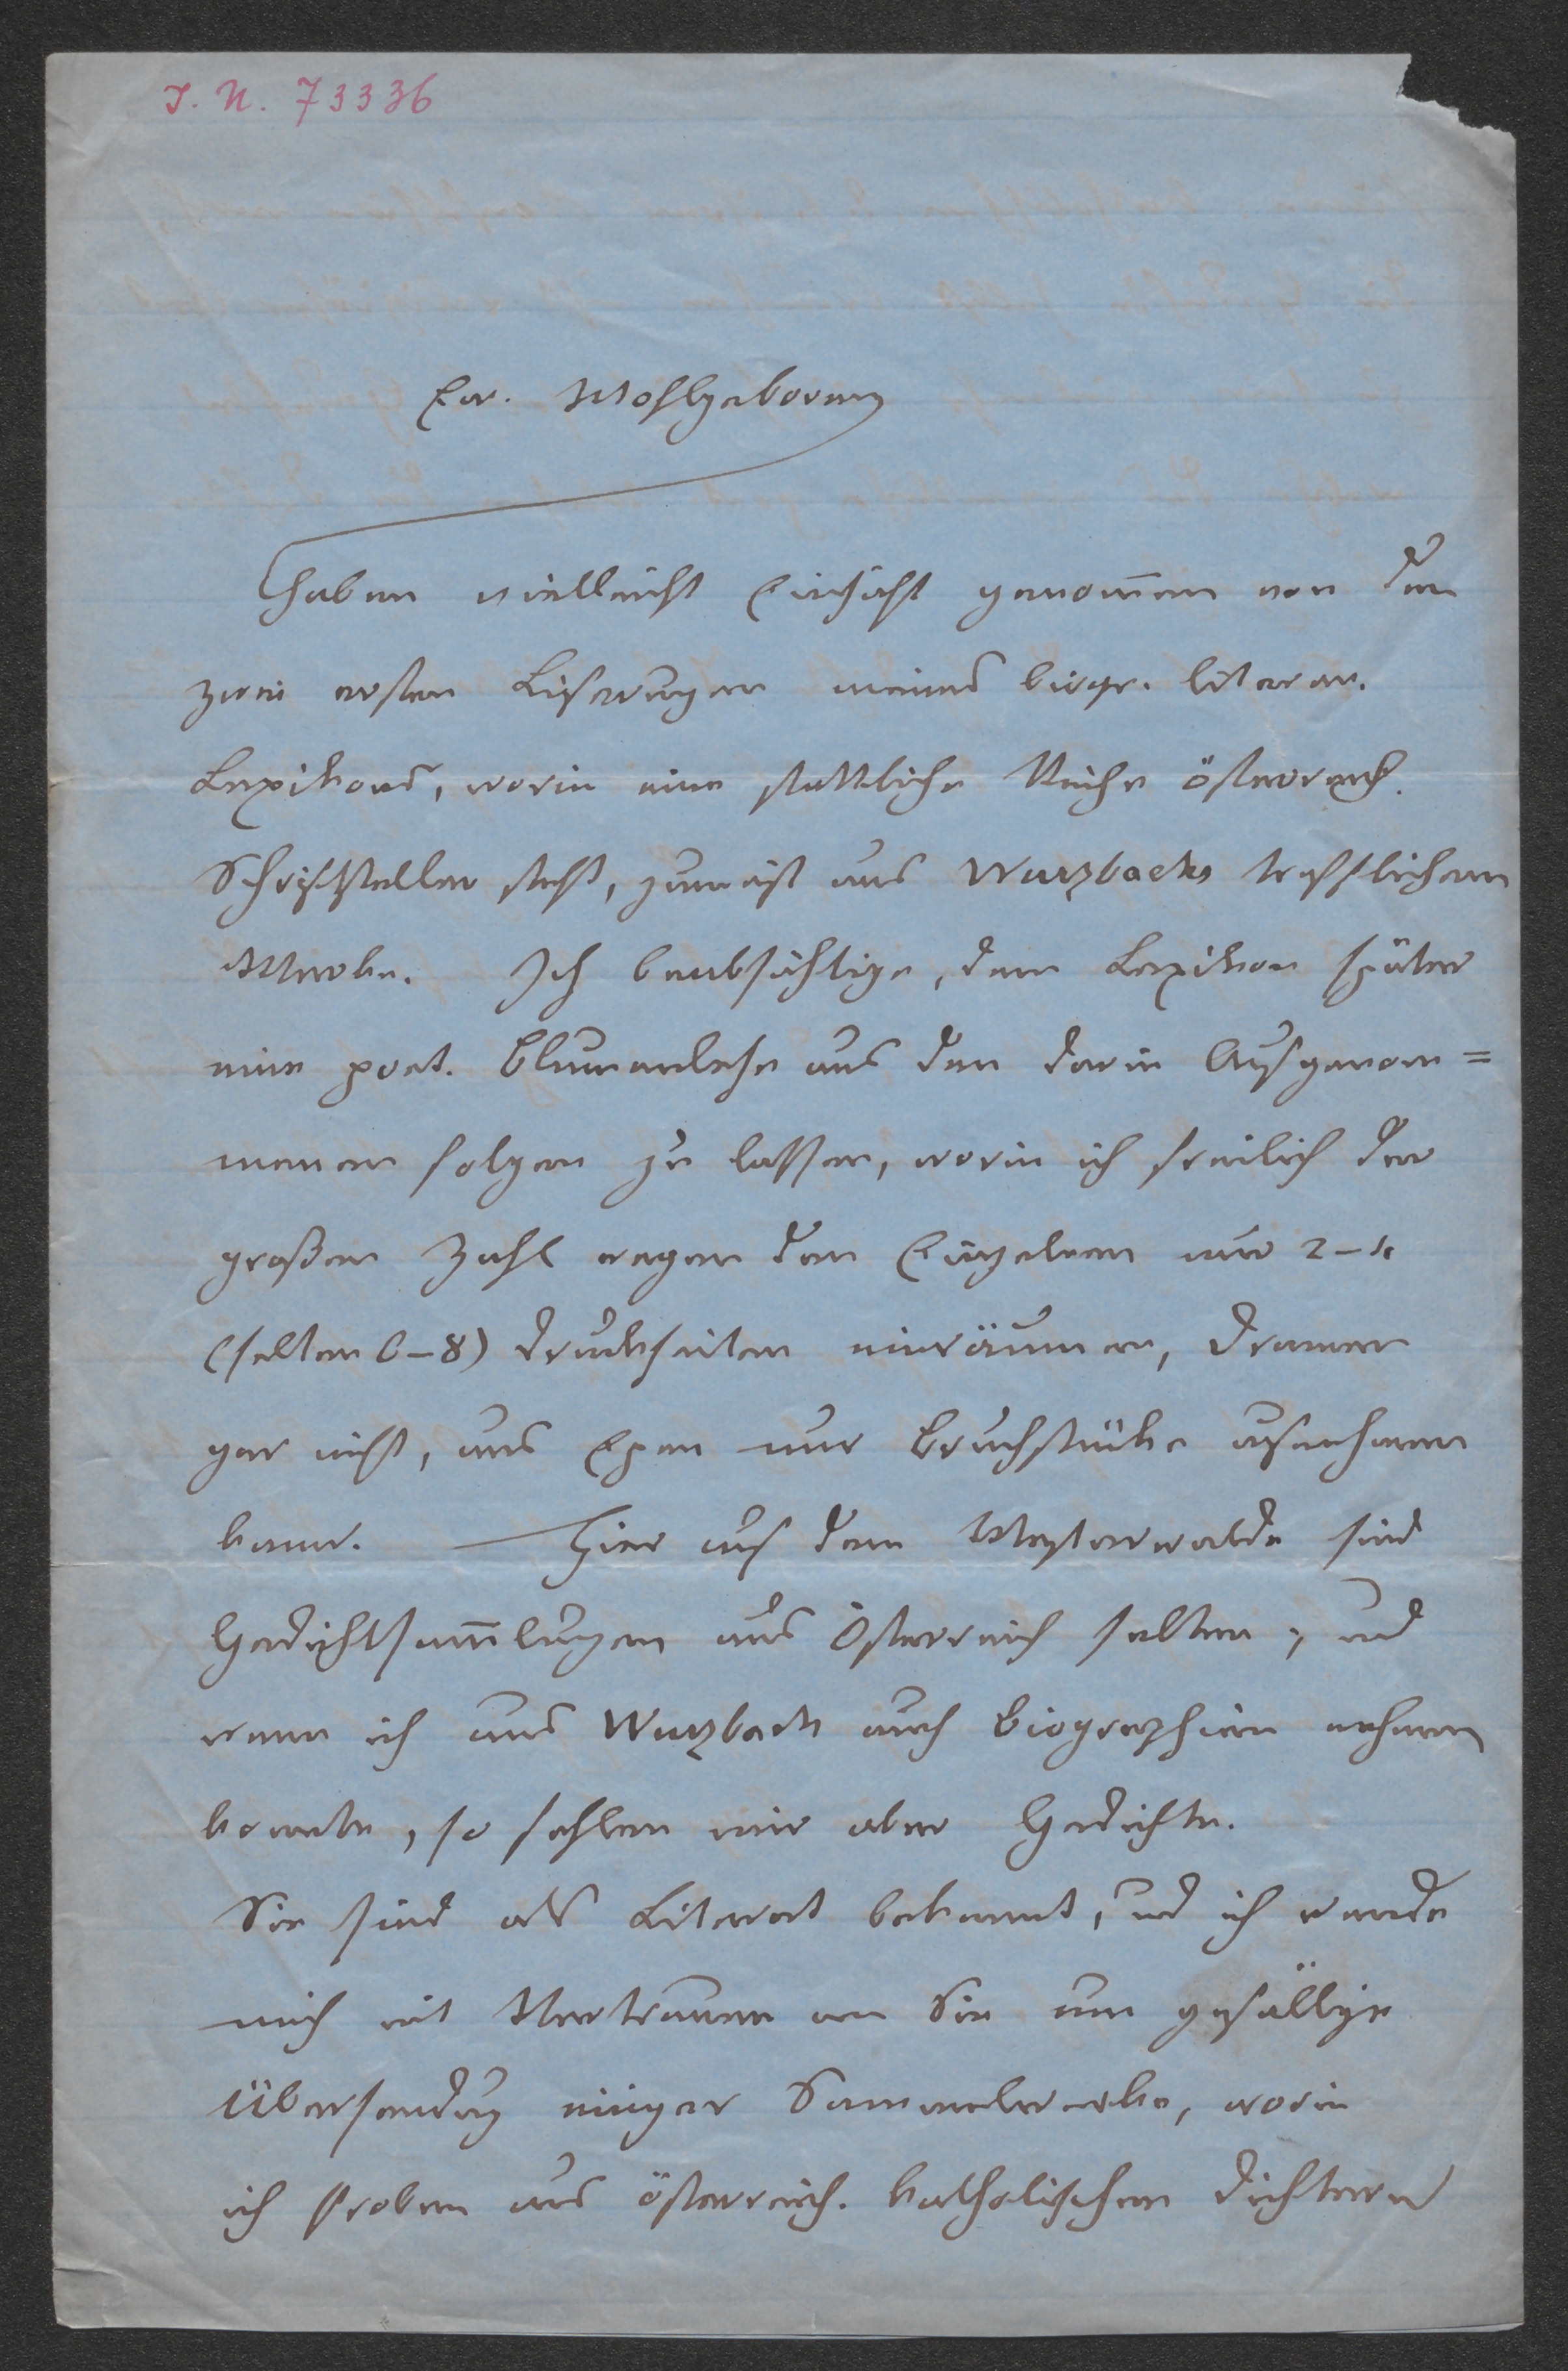 I. N. 73336
Ew. Wohlgeboren
haben vielleicht Einsicht genom̄en von den
zwei ersten Lieferungen meines biogr. literar.
Lexikons, worin eine stattliche Reihe österreich.
Schriftsteller steht, zumeist aus Wurzbachs trefflichem
Werke. Ich beabsichtige, dem Lexikon später
eine poet. Blumenlese aus den darin Aufgenom=
menen folgen zu lassen, worin ich freilich der
großen Zahl wegen den Einzelnen nur 2–4
(selten 6–8) Druckseiten einräumen, Dramen
gar nicht, aus Epen nur Bruchstücke aufnehmen
kann. — Hier auf dem Westerwalde sind
Gedichtsam̄lungen aus Österreich selten; und
wenn ich aus Wurzbach auch Biographien nehmen
konnte, so fehlen mir aber Gedichte.
Sie sind als Literat bekannt, und ich wende
mich mit Vertrauen an Sie um gefällige
Übersendung einiger Sammelwerke, worin
ich Proben aus österreich. katholischen Dichtern